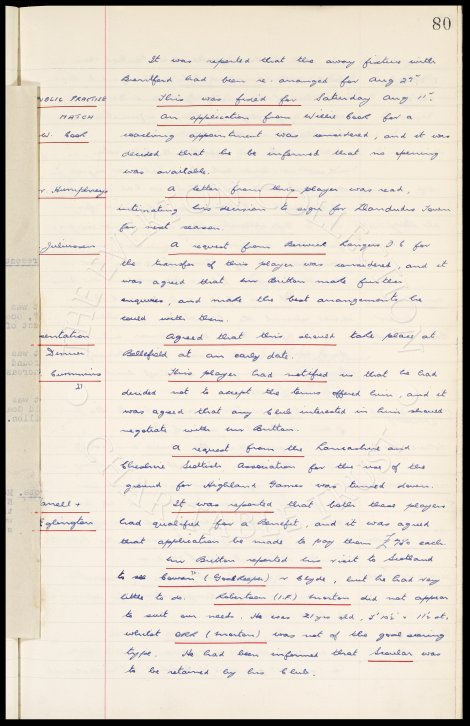 80
It was reported that the away fixture with
Brentford had been re-arranged for Aug 27th
PUBLIC PRACTISE
MATCH
This was fixed for Saturday Aug 11th.
W. Cook
An application from Willie Cook for a
coaching appointment was considered, and it was
decided that he be informed that no opening
was available.
Humphreys
A letter from this player was read,
intimating his decision to sign for Llandudno Town
for next season.
Juliussen
A request from Berwick Rangers F.C for
the transfer of this player was considered, and it
was agreed that Mr Britton make further
enquiries, and make the best arrangements he
could with them.
sentation
Dinner
Agreed that this should take place at
Bellefield at an early date.
Cummins
This player had notified us that he had
decided not to accept the terms offered him, and it
was agreed that any Club interested in him should
negotiate with Mr Britton.
A request from the Lancashire and
Cheshire Scottish Association for the use of the
ground for Highland Games was turned down.
Eglington
It was reported that both these players
had qualified for a Benefit, and it was agreed
that application be made to pay them £750 each.
Mr Britton reported his visit to Scotland
to see Cowan (Goalkeeper) Clyde, but he had very
little to do. Robertson (I.F.) Morton did not appear
to suit our needs. He was 21 yrs old, 5' 10½" 11½ st,
whilst ORR (Morton) was not of the goal scoring
type. He had been informed that Scoular was
to be retained by his Club.